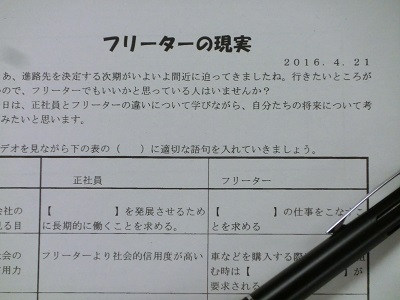 フリーターの現実
2016.4.21
あ、進路先を決定する次期がいよいよ間近に迫ってきましたね。行きたいところが
ので、フリーターでもいいかと思っている人はいませんか？
日は、正社員とフリーターの違いについて学びながら、自分たちの将来について考
みたいと思います。
デオを見ながら下の表の（　　）に適切な語句を入れていきましょう。
正社員　フリーター
会社の　【　　　　　】を発展させるため　【　　　　　】の仕事をこなすこ
見る目　に長期的に働くことを求める。　とを求める
社会の　フリーターより社会的信用度が高い　車などを購入する際
信用力　む時は【　　　　　】が
要求される